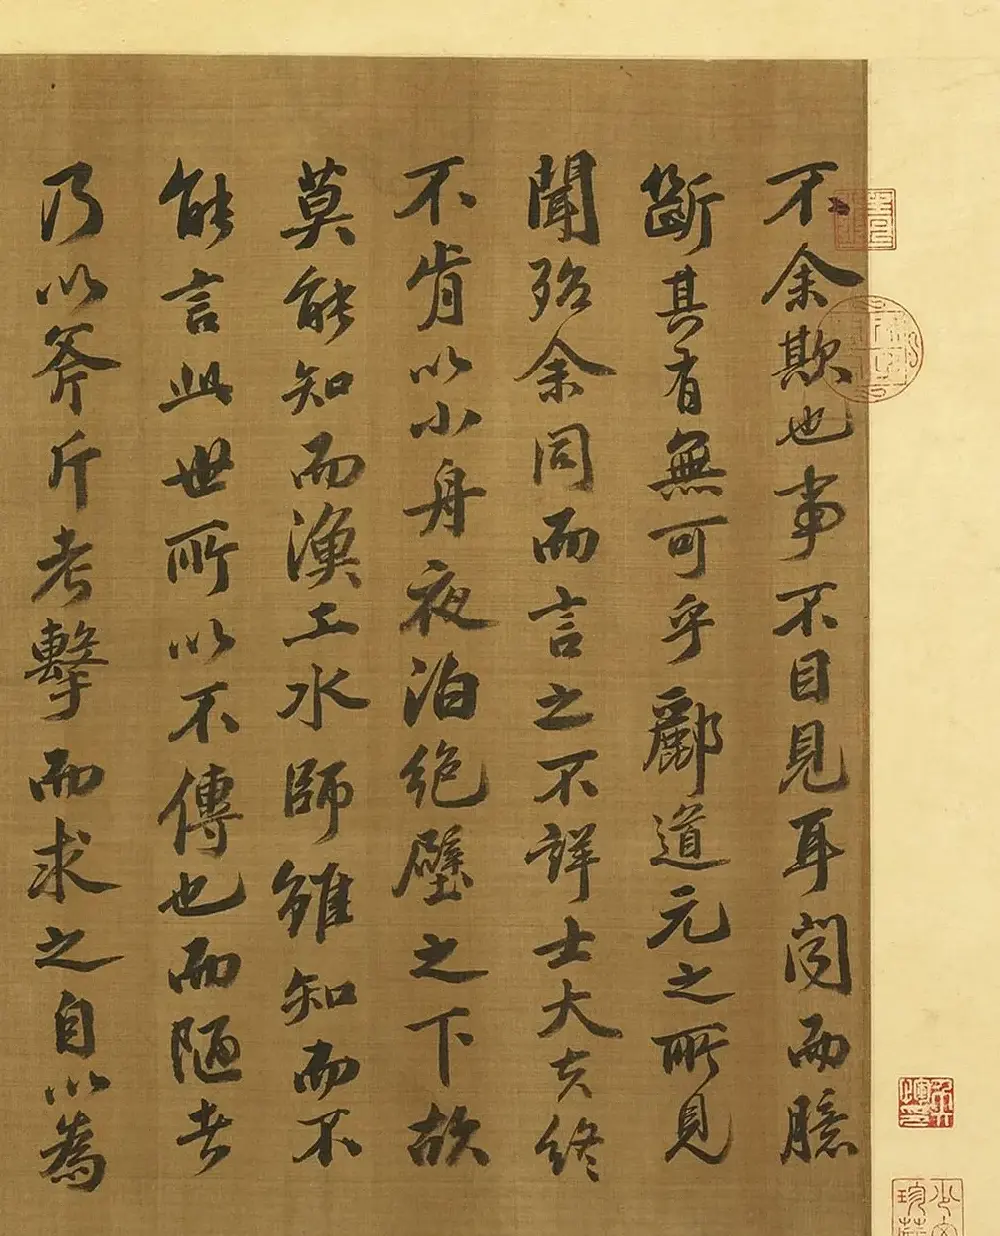 不余欺也事不目見耳聞而臆
斷其有無可乎酈道元之所見
聞殆余同而言之不詳士大夫終
不肯以小舟夜泊絶壁之下故
莫能知而漁工水師雖知而不
能言此世所以不傳也而陋者
乃以斧斤考擊而求之自以為